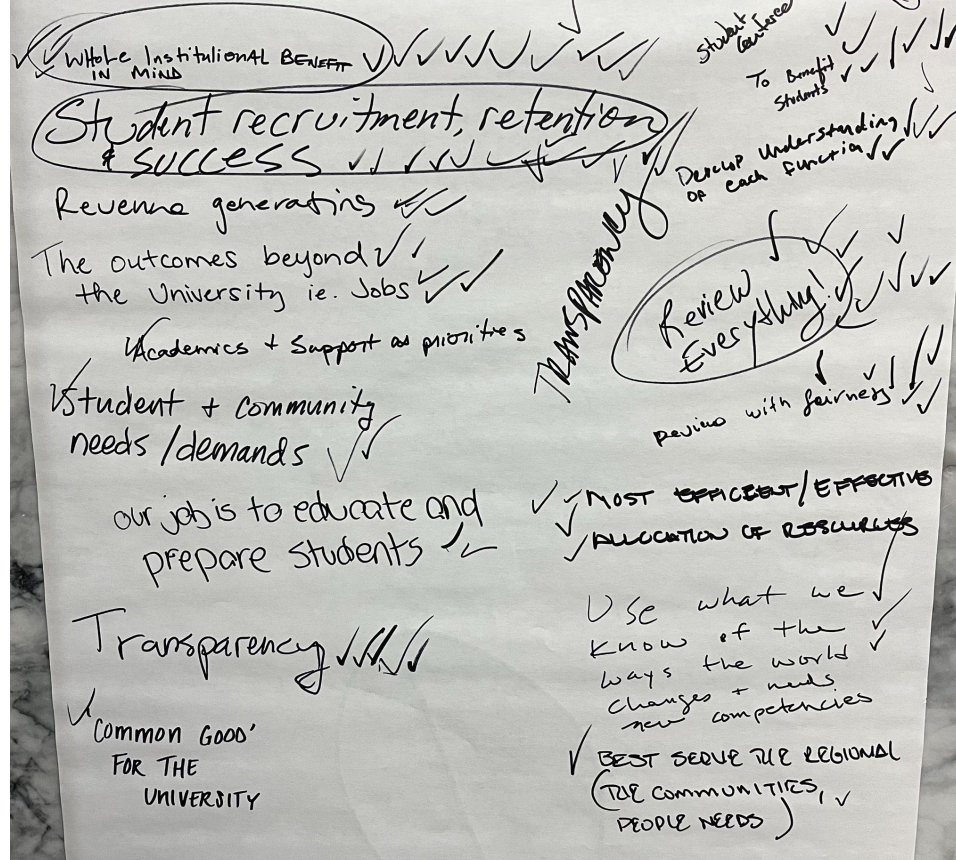 WHOLE InstitutionAL BENEFIT
IN MIND
Student recruitment, retention
& SUCCESS
Revenue generating
The outcomes beyond
the University ie. Jobs
Academics + Support as priorities
Student + Community
needs/demands
our job is to educate and
prepare students
Transparency
'Common GOOD'
FOR THE
UNIVERSITY
Student
To Benefit
Students
Develop Understanding
OF each function
TRANSPARENCY
Review
Everything!
Review with fairness
MOST EFFICIENT/EFFECTIVE
ALLOCATION OF RESOURCES
Use what we
know of the
ways the world
changes + needs
new competencies
BEST SERVE THE REGIONAL
(THE COMMUNITIES,
PEOPLE NEEDS)